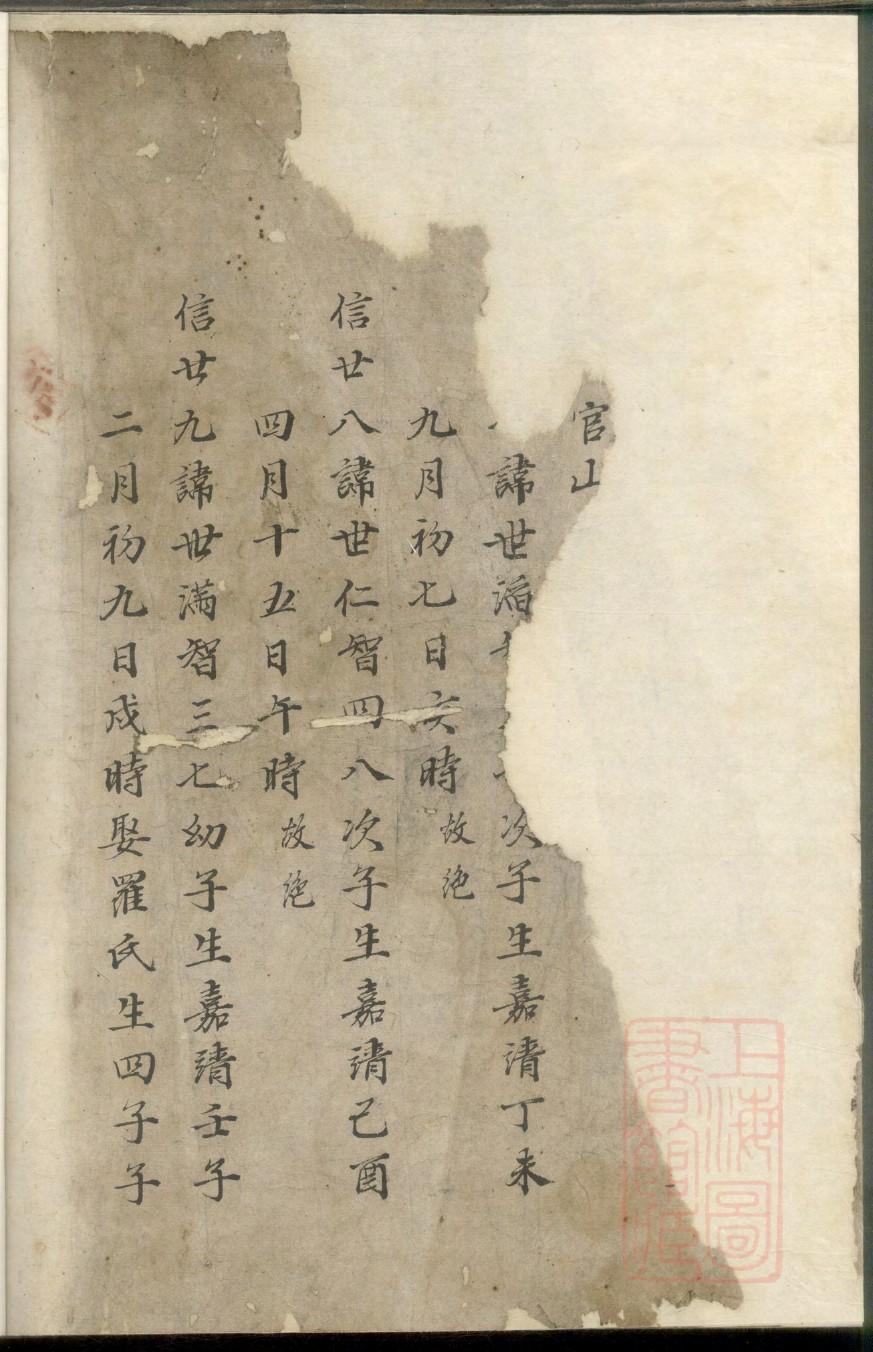 官山
諱世滔次子生嘉靖丁未
九月初七日亥時故絶
信廿八諱世仁智四八次子生嘉靖己酉
四月十五日午時故絶
信廿九諱世滿智三七幼子生嘉靖壬子
二月初九日戍時娶羅氏生四子子
上海圖書館藏